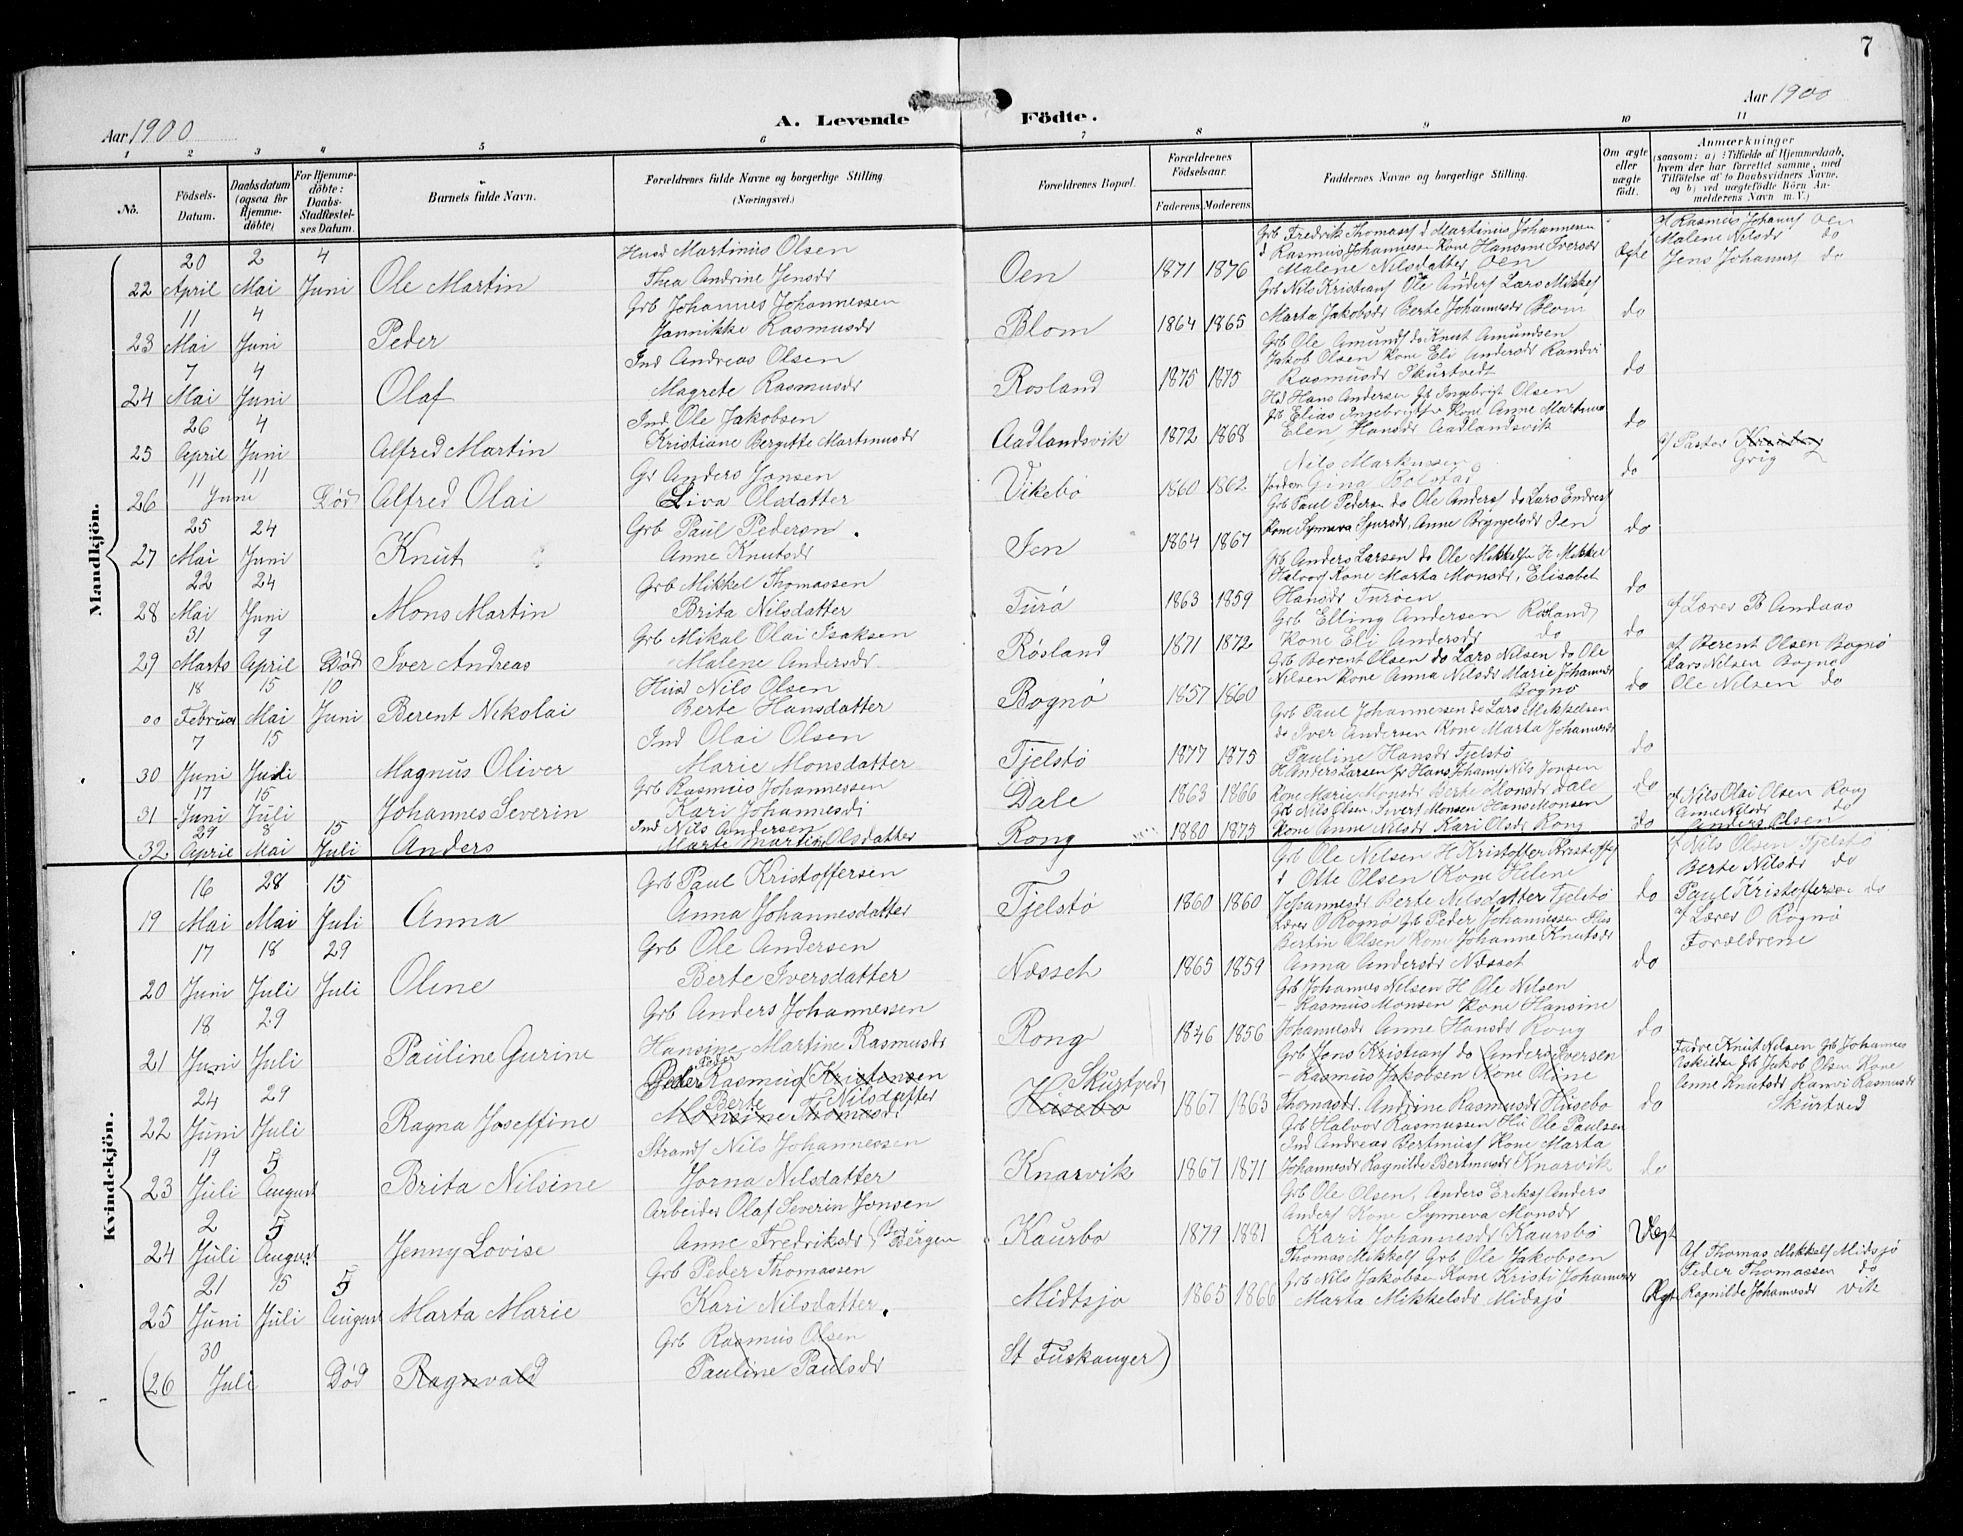 7
Aar 1900
A. Levende Födte.
Aar 1900
1 2 3 4 5 6 7 8 9 10 11
No.
Födsels-Datum.
Daabsdatum (ogsaa for Hjemme-döbte)
For Hjemme-döbte: Daabs-Stadfæstel-ses Datum.
Barnets fulde Navn.
Forældrenes fulde Navne og borgerlige Stilling (Næringsvei.)
Forældrenes Bopæl.
Forældrenes Födselsaar.
Faderens Moderens
Faddernes Navne og borgerlige Stilling.
Om ægte eller uægte födt.
Anmærkninger
(saasom: a) i Tilfælde af Hjemmedaab, hvem der har forrettet samme, med Tilföielse af to Daabsvidners Navne, og b) ved uægtefödte Börn Anmelderens Navn m. V.)
Mandkjön.
22 20 April 2 Mai 4 Juni Ole Martin
Husd Martinus Olsen
Thea Andrine Jensdr
Oen 1871 1876
Grb Fredrik Thomass d Martinus Johannesen
d Rasmus Johannessen Kone Hansine Iversdr
Malene Nilsdatter Oen
Ægte
af Rasmus Johanns Oen
Malene Nilsdr do
Jens Johanns do
23 11 Mai 4 Juni Peder
Grb Johannes Johannessen
Jannikke Rasmusdr
Blom 1864 1865
Grb Nils Kristians Ole Anders Lars Mikkels
Marta Jakobsdr Berte Johannesdr Blom
do
24 7 Mai 4 Juni Olaf
Ind Andreas Olsen
Magrete Rasmusdr
Rosland 1875 1875
Grb Ole Amunds do Knut Amundsen
Jakob Olsen Kone Eli Andersdr Randvi
Rasmusdr Skurtvedt
do
25 26 April 4 Juni Alfred Martin
Ind Ole Jakobsen
Kristiane Bergitte Martinusdr
Aadlandsvik 1872 1868
Hd Hans Andersen Gb Ingebrigt Olsen
Gb Elias Ingebrigts Kone Anne Martinus
Elen Hansdr Aadlandsvik
do
26 11 11 Juni Död Alfred Olai
Gr Anders Jansen
Liva Olsdatter
Vikebö 1860 1862
Nils Markussen
Jordm Gina Bolstad
do
af Pastor
Grig
27 25 Mai 24 Juni Knut
Grb Paul Pedersn
Anne Knutsdr
Ien 1864 1867
Grb Paul Pedersn do Ole Anders do Lars Endres
Kone Synneva Sjursdr, Anne Bryngelsdr Ien
do
28 22 Mai 24 Juni Mons Martin
Grb Mikkel Thomassen
Brita Nilsdatter
Turö 1863 1859
Grb Anders Larsen do Ole Mikkelsn H Mikkel
Halvors Kone Marta Monsdr, Elisabet
Hansdr Turöen
do
29 31 Marts 9 April Död Iver Andreas
Grb Mikal Olai Isaksen
Malene Andersdr
Rösland 1871 1872
Grb Elling Andersen Rösland
Kone Eli Andersdr do
do
af Lærer B Andaas
00 18 Februar 15 Mai 10 Juni Berent Nikolai
Husd Nils Olsen
Berte Hansdatter
Bognö 1857 1860
Grb Berent Olsen do Lars Nilsen do Ole
Nilsen Kone Anna Nilsdr Marie Johannsdr
Bognö
do
af Berent Olsen Bognö
Lars Nilsen Bognö
Ole Nilsen do
30 7 Juni 15 Juli Magnus Oliver
Ind Olai Olsen
Marie Monsdatter
Tjelstö 1877 1875
Grb Paul Johannessen do Lars Mikkelsen
do Iver Andersen Kone Marta Johannesdr
Pauline Hansdr Tjelstö
do
31 17 Juni 15 Juli Johannes Severin
Grb Rasmus Johannessen
Kari Johannesdr
Dale 1863 1866
H Anders Larsen Gr Hans Johanns Nils Jonsen
Kone Marie Monsdr Berte Monsdr Dale
do
32. 29 April 8 Mai 15 Juli Anders
Ind Nils Andersen
Marte Martin Olsdatter
Rong 1880 1875
Grb Nils Olsen Sivert Monsen Hans Monsen
Kone Anne Nilsdr Kari Olsdr Rong
do
af Nils Olai Olsen Rong
Anne Nilsdr do
Anders Olsen
Kvindekjön.
19 16 Mai 28 Mai 15 Juli Anna
Grb Paul Kristoffersen
Anna Johannesdatter
Tjelstö 1860 1860
Grb Ole Nilsen H Kristoffer Kristoffs
d Otte Olsen Kone Helene
Johannesdr Berte Nilsdatter Tjelstö
do
af Nils Olsen Tjelstö
Berte Nilsdr do
Paul Kristoffersen do
20 17 Juni 18 Juli 29 Juli Oline
Grb Ole Andersen
Berte Iversdatter
Nesset 1865 1859
Lærer O Rognö Gb Peder Johannessen Hus
Bertin Olsen Kone Johanne Knutsdr
Anna Andersdr Nesset
do
af Lærer O Rognö
Forældrene
21 18 Juni 29 Juli Pauline Gurine
Grb Anders Johannessen
Hansine Martine Rasmusdr
Rong 1846 1856
Grb Johannes Nilsen H Ole Nilsen
- Rasmus Monsen Kone Hansine
Johannesdr Anne Hansdr Rong
do
22 24 Juni 29 Juli Ragna Joseffine
Peder Rasmus Kristensen
Berte Nilsdatter
Monsine Thomasdr
Skurtved
Husebö 1867 1863
Grb Jons Kristians do Anders Iversen
- Rasmus Jakobsen Kone Oline
Thomasdr. Andrine Rasmusdr Husebö
do
Fadre Knut Nilsen Grb Johannes
Askildsn Gb Jakob Olsen Kone
Anne Knutsdr Ranvi Rasmusdr
Skurtved
23 19 Juli 5 August Brita Nilsine
Strands Nils Johannessen
Jorna Nilsdatter
Knarvik 1867 1871
Grb Halvor Rasmussen Hu Ole Paulsen
Ind Andreas Bertinus Kone Marta
Johannesdr Ragnilde Bertinusdr Knarvik
do
24 2 Juli 5 August Jenny Lovise
Arbeider Olaf Severin Jonsen
Anne Fredriksdr Bergen
Kaurbo 1879 1881
Grb Ole Olsen, Anders Eriks Anders
Anders Kone Synneva Monsdr
Kari Johannesdr Kaursbö
Uægt
25 21 Juni 15 Juli 5 August Marta Marie
Grb Peder Thomassen
Kari Nilsdatter.
Midtsjo 1865 1866
Thomas Mikkels Grb Ole Jakobsen
Grb Nils Jakobsn Kone Kristi Johannesdr
Marta Mikkelsdr Midsjö
Ægt
Af Thomas Mikkels Midsjö
Peder Thomassen do
Ragnilde Johannesdr Vik
(26 30 Juli Död Ragnvald
Grb Rasmus Olsen
Pauline Paulsdr
St Fuskanger)